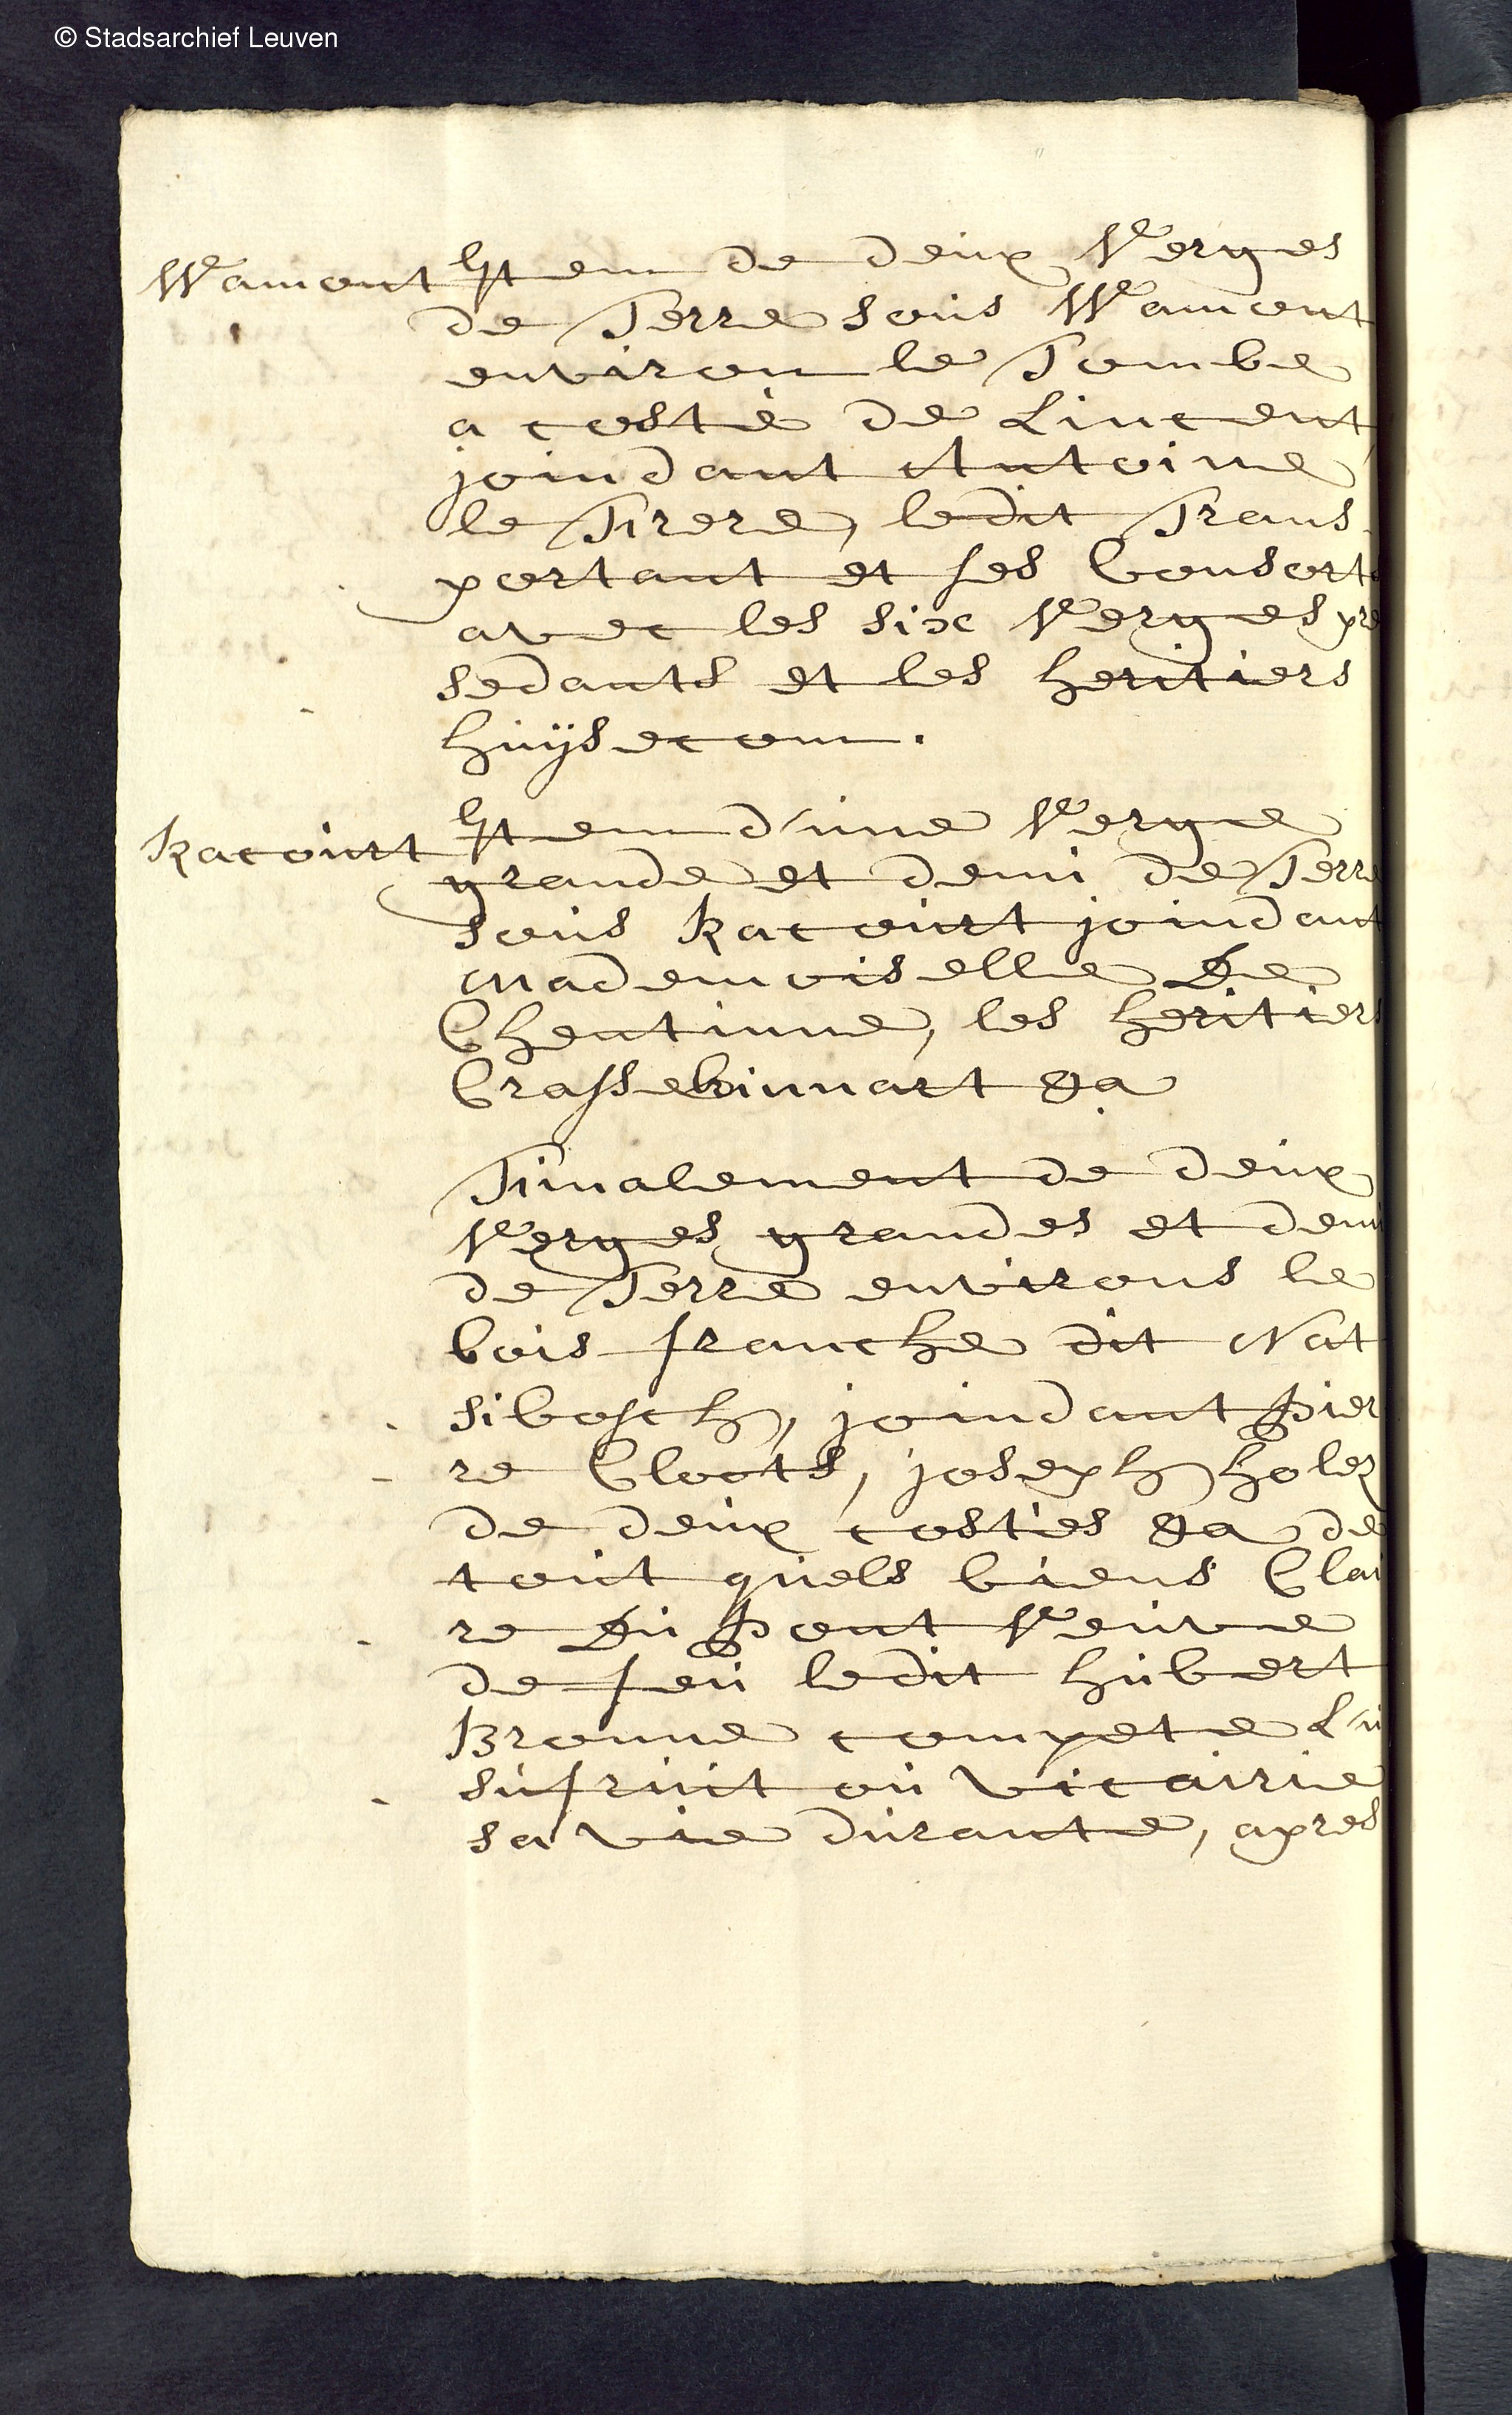 © Stadsarchief Leuven
Wamont Item de deux Verges
de Terre sous Wamont
environ le Tombe
a costé de Lincent
joindant Antoine
le Frere, ledit Trans
portant et ses Consorts
avec les six Verges pre
sedants et les heritiers
huÿsecom.
Racourt Item d'une Verge
grande et demi de Terre
sous Racourt joindant
Mademoiselle De
Chentinne, les heritiers
Crassebinnart &a
Finalement de deux
Verges grandes et demi
de Terre environs le
bois franche dit Nat
sibosch, joindant Pier
re Cloots, joseph holez
de deux costés &a de
tout quels biens Clai
re Du Pont Veuve
de feu ledit hubert
Bronne compete L'u
sufruit ou vicairie
sa vie durante, apres